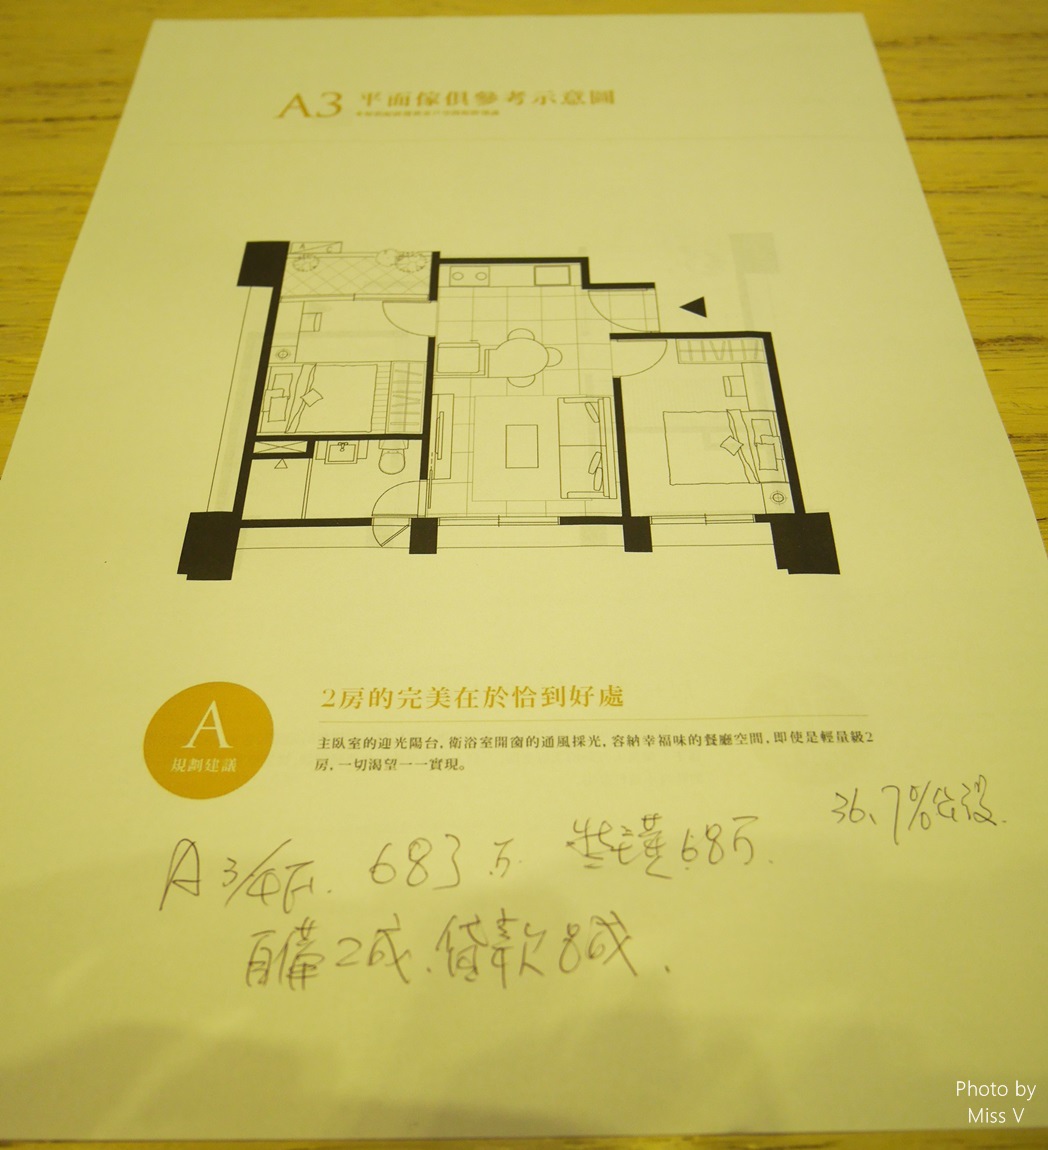 A3 平面傢俱參考示意圖
A C
A
規劃建議
2房的完美在於恰到好處
主臥室的迎光陽台,衛浴室開窗的通風採光,容納幸福味的餐廳空間,即使是輕量級2
房,一切渴望一一實現。
36.7%公設.
A3/4F. 683万 68万.
自備2成.貸款8成.
Photo by
Miss V